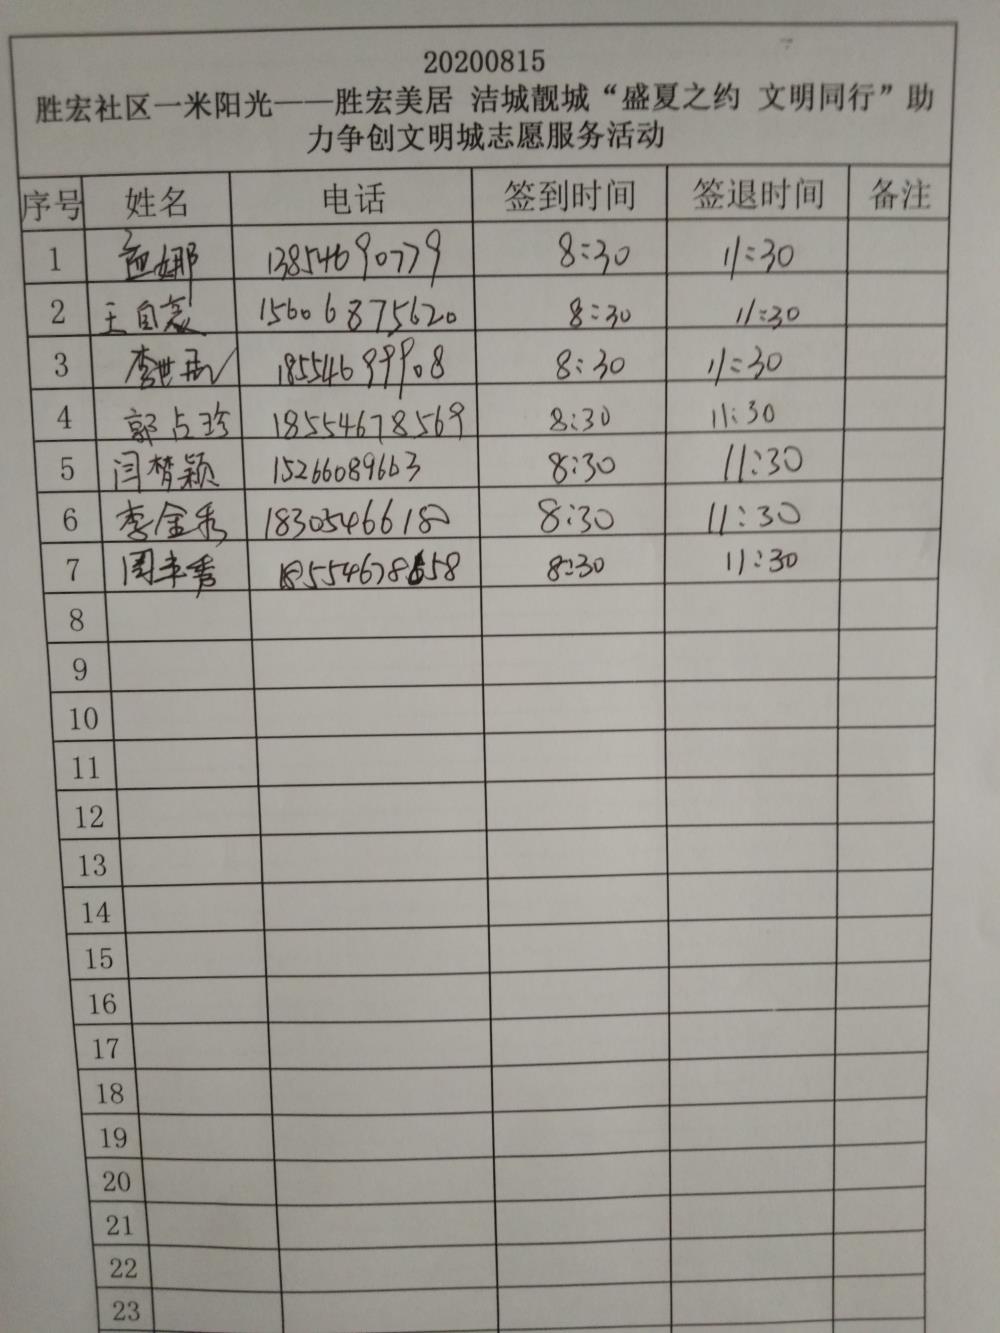 20200815
胜宏社区一米阳光——胜宏美居 洁城靓城“盛夏之约 文明同行”助
力争创文明城志愿服务活动
序号 姓名 电话 签到时间 签退时间 备注
1 13854690779 8:30 11:30
2 王自 15606875620 8:30 11:30
3 李世 18554699908 8:30 11:30
4 郭占珍 18554678569 8:30 11:30
5 闫梦颖 15266089663 8:30 11:30
6 李金秀 18305466180 8:30 11:30
7 周丰秀 18554678658 8:30 11:30
8
9
10
11
12
13
14
15
16
17
18
19
20
21
22
23